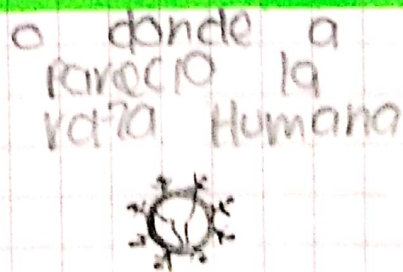 o donde a
parecio la
raza Humana